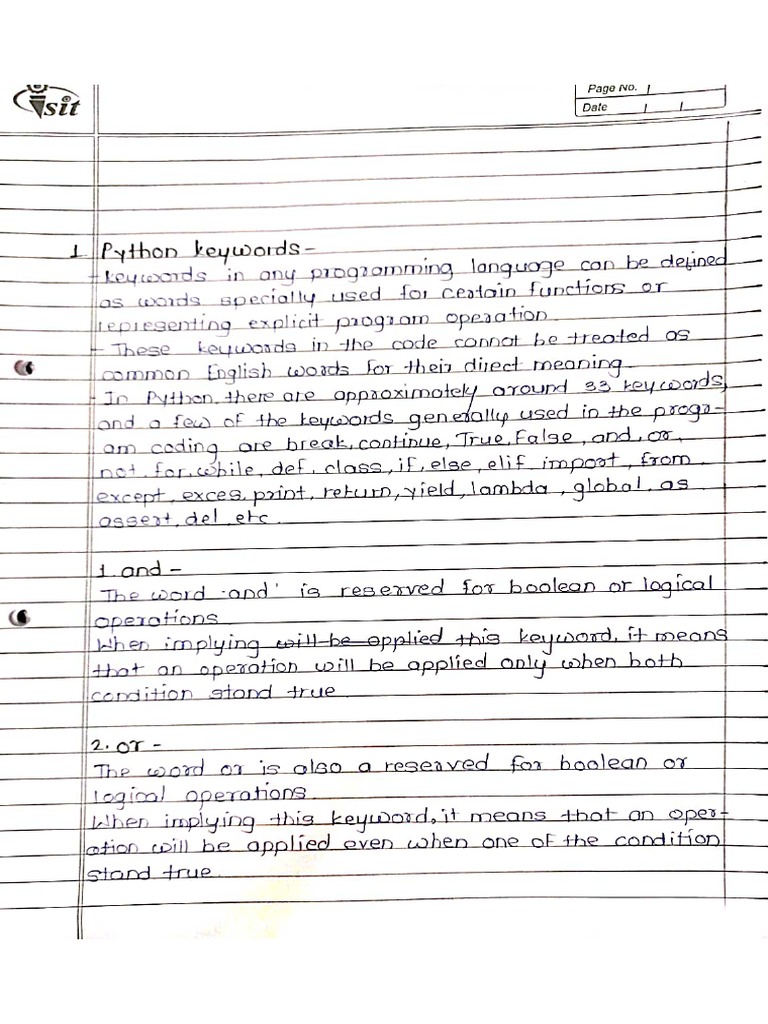 isit
Page No.
Date
1 Python keywords-
- keywords in any programming language can be defined
as words specially used for certain functions or
representing explicit program operation.
- These keywords in the code cannot be treated as
common English words for their direct meaning.
- In Python, there are approximately around 33 keywords,
and a few of the keywords generally used in the progr-
am coding are break, continue, True, False, and, or,
not, for, while, def, class, if, else, elif, import, from
except, exces, print, return, yield, lambda, global, as
assert, del, etc.
1 and -
The word 'and' is reserved for boolean or logical
operations.
When implying will be applied this keyword, it means
that an operation will be applied only when both
condition stand true
2. or -
The word or is also a reserved for boolean or
logical operations.
When implying this keyword, it means that an oper-
ation will be applied even when one of the condition
stand true.